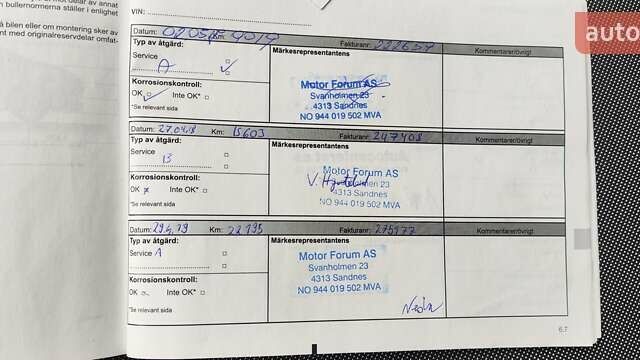 bullernormerna ställer i enlighet
å bilen eller om montering sker av
nt med originalreservdelar omfat-
VIN:
auto
Datum: Km: 4014 Fakturanr: 222654 Kommentarer/övrigt
Typ av åtgärd: Märkesrepresentantens
Service A
Korrosionskontroll: Motor Forum AS
OK Inte OK* Svanholmen 23
4313 Sandnes
*Se relevant sida NO 944 019 502 MVA
Datum: 27.04.18 Km: 15603 Fakturanr: 247408 Kommentarer/övrigt
Typ av åtgärd: Märkesrepresentantens
Service B
Motor Forum AS
Korrosionskontroll: V. Svanholmen 23
OK x Inte OK* 4313 Sandnes
NO 944 019 502 MVA
*Se relevant sida
Datum: 29.4.19 Km: 22195 Fakturanr: 275177 Kommentarer/övrigt
Typ av åtgärd: Märkesrepresentantens
Service A Motor Forum AS
Svanholmen 23
Korrosionskontroll: 4313 Sandnes
OK Inte OK* NO 944 019 502 MVA
*Se relevant sida